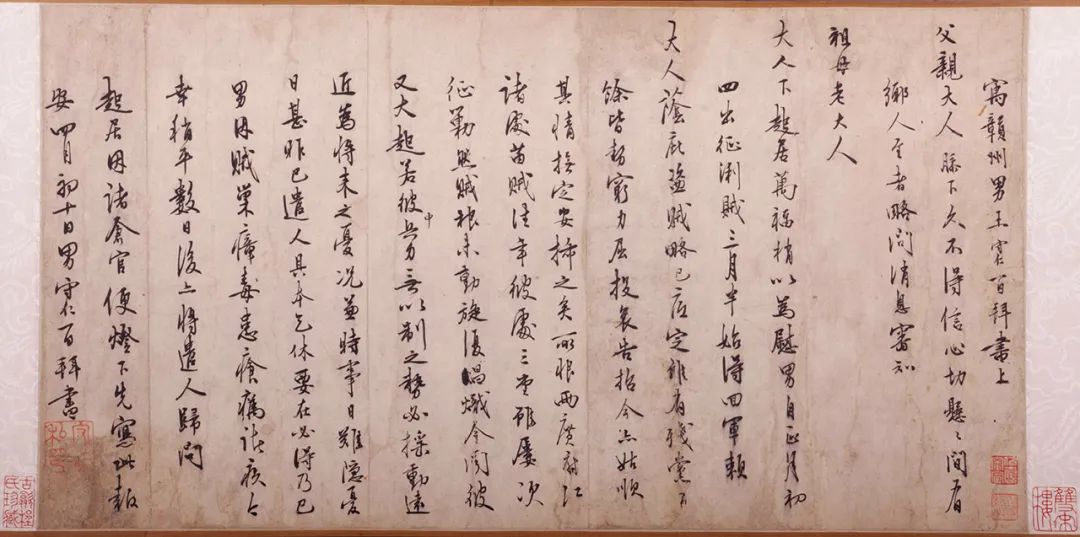 寓贛州男王守仁百拜書上
父親大人膝下久不得信心切懸〻間有
鄉人至者略問消息審知
祖母老大人
大人下起居萬福稍以為慰男自正月初
四出征浰賊三月半始得回軍賴
大人蔭庇盜賊略已底定雖有殘黨百
餘皆勢窮力屈投哀告招今亦姑順
其情撫定安插之矣所恨兩廣府江
諸處苗賊往年彼處三堂雖屢次
征勦然賊根未動旋復昌熾今聞彼
又大起若彼中兵力無以制之勢必搖動遠
近為將來之憂況兼時事日難隱憂
日甚昨已遣人具本乞休要在必得乃已
男因賊巢瘴毒患瘡癘諸疾今
幸稍平數日後亦將遣人歸問
起居因諸倉官便燈下先寫此報
安四月初十日男守仁百拜書